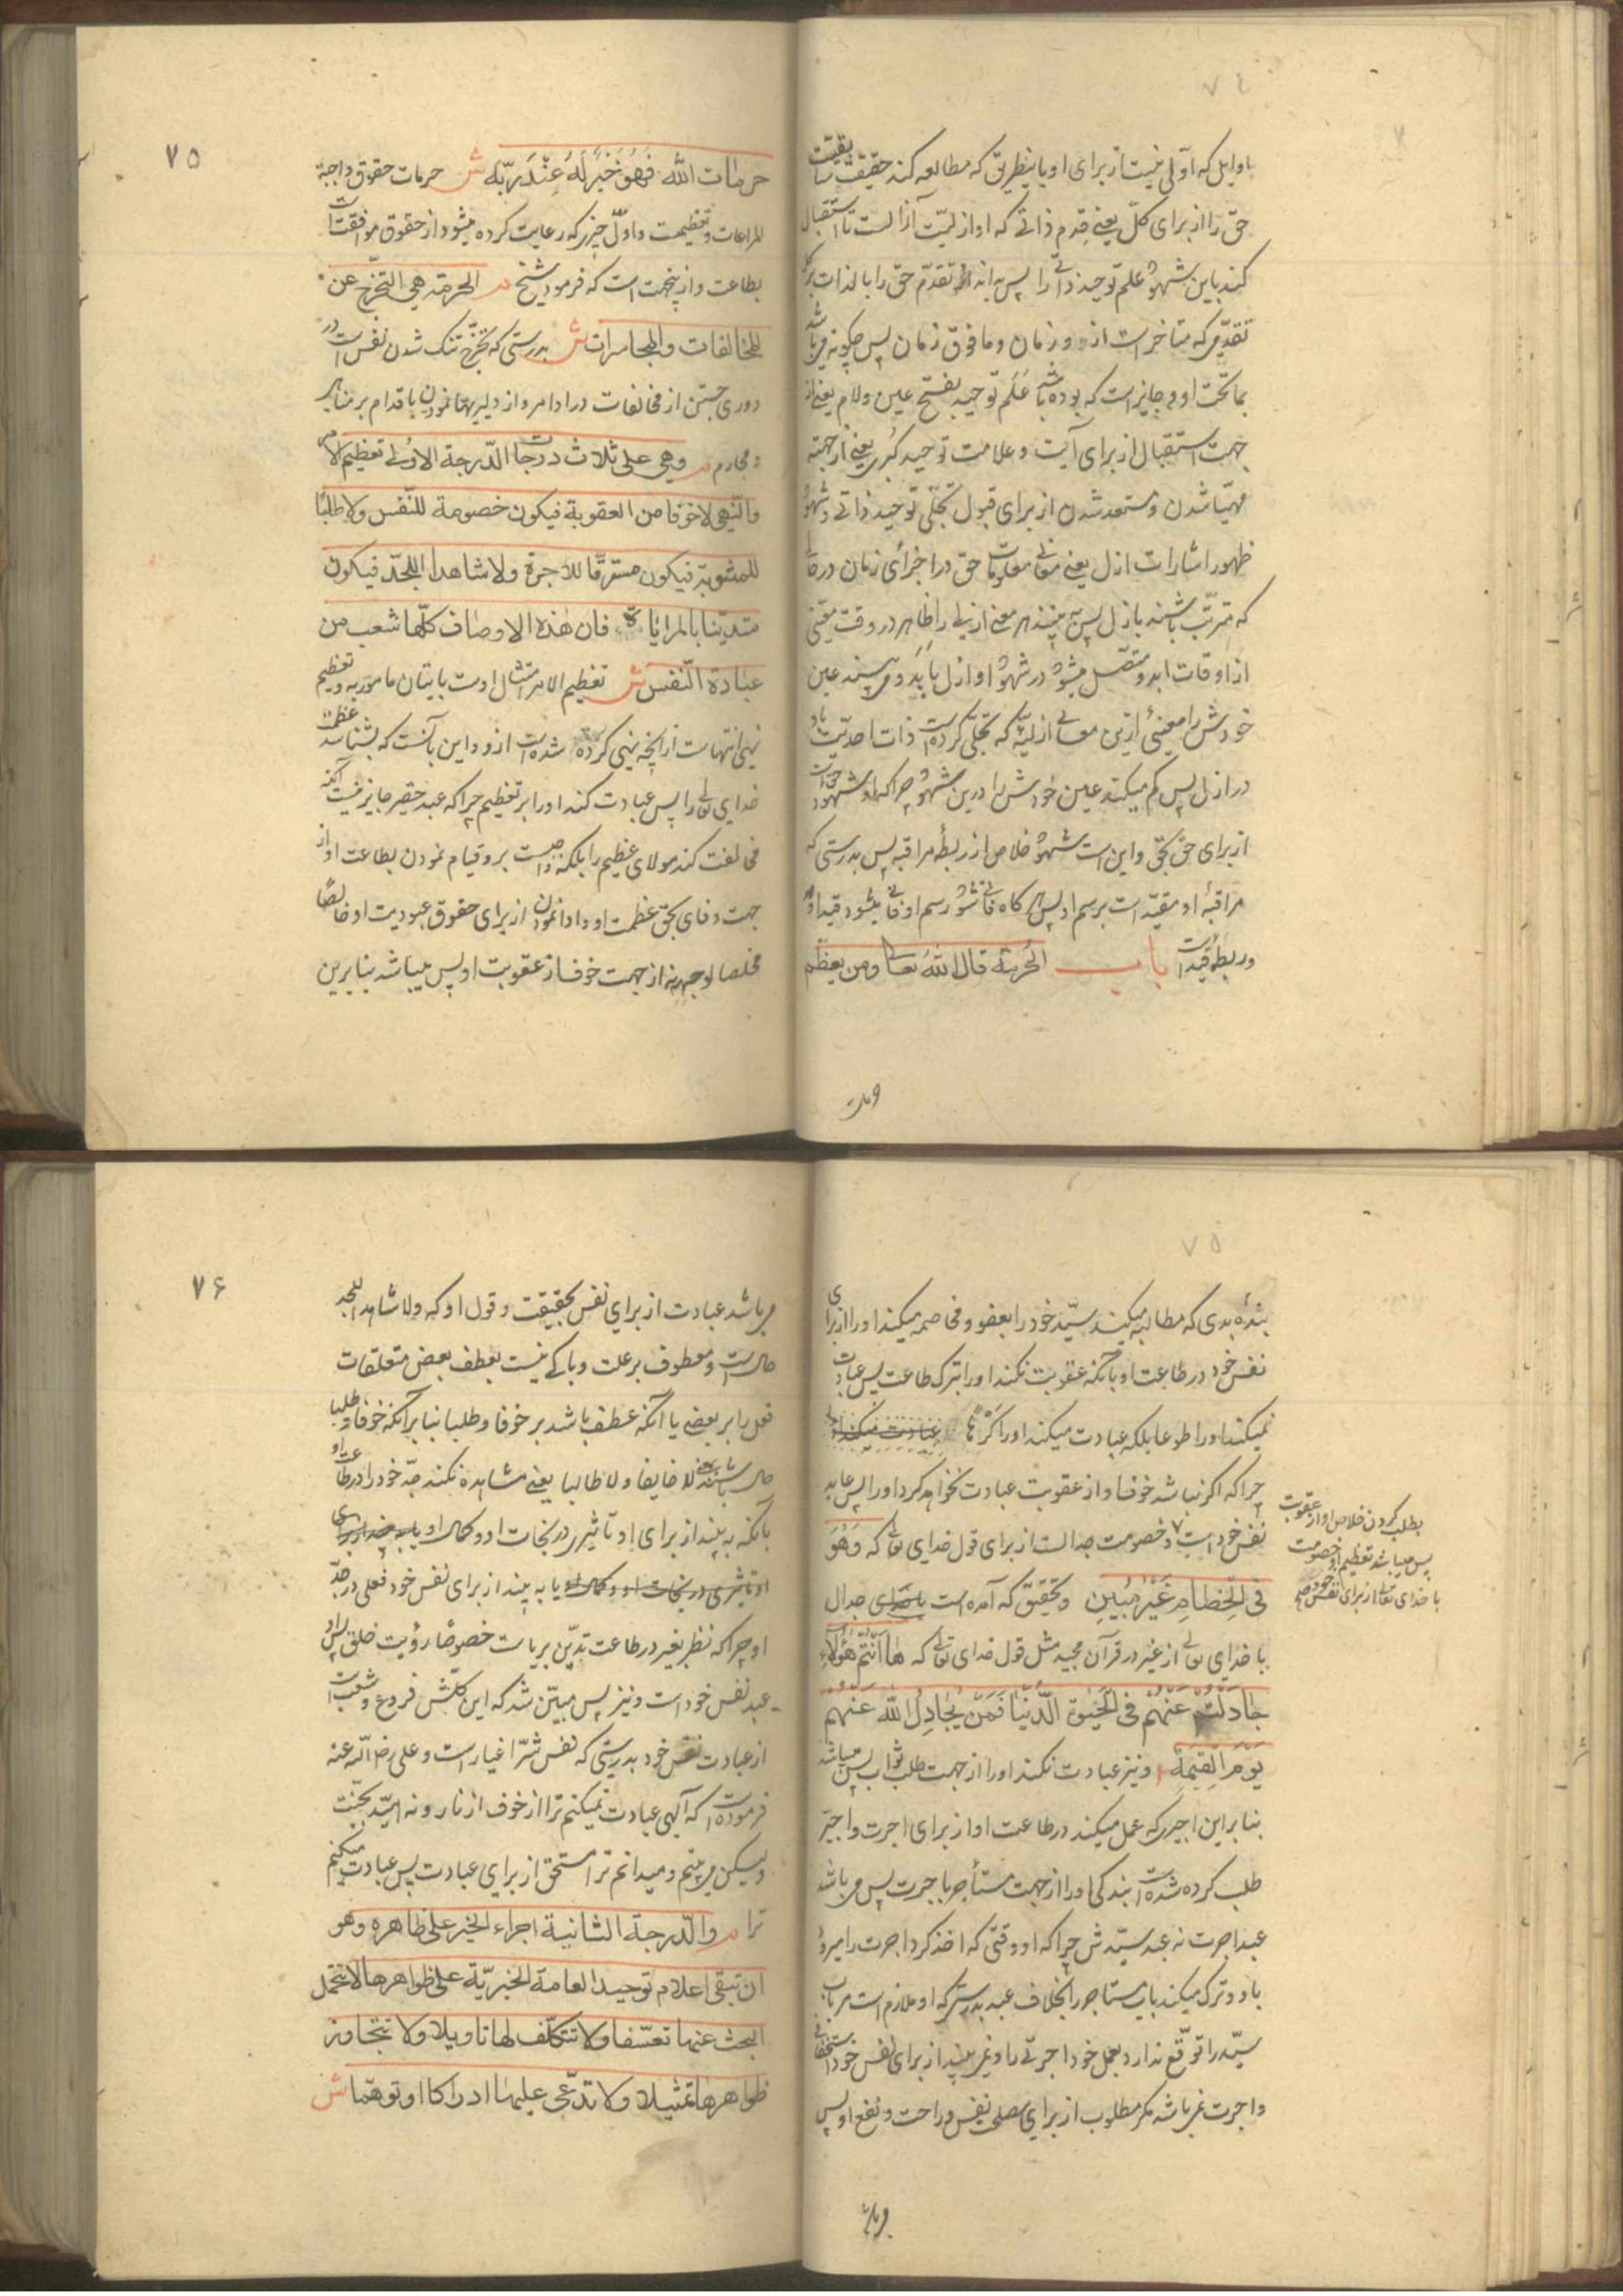 باوایل که اولی نیست از برای او باینطریق که مطالعه کند حقیقت سابقیت
حق را از برای کل یعنی قدم ذاتی که او ازلیت آزالست تا استقبال
کند باین شهود علم توحید ذاتی را پس به اندازه تقدم حق را بالذات بر کل
تقدمی که متاخر است ازو و زمان و مافوق زمان پس چگونه میباشد
بماتحت او و جایز است که بوده باشد عَلَم توحید بفتح عین و لام یعنی از
جهت استقبال از برای آیت و علامت توحید کبری یعنی از جهته
مهیّا شدن و مستعد شدن از برای قبول تجلّی توحید ذاتی و شهود
ظهور اشارات ازل یعنی معانی معلومات حق در اجزای زمان در حالی
که مترتّب باشند بازل پس به بیند هر معنی ازلی را ظاهر در وقت معیّنی
از اوقات ابد و متصل میشود در شهود او ازل بابد و می بیند عین
خودش را معنیٔ ازین معانی ازلیّه که تجلّی کرده است ذات احدیّت باو
در ازل پس کم میکند عین خودش را درین شهود چراکه او شهود حق است
از برای حق بحق و این است شهود خلاص از ربطهٔ مراقبه پس بدرستی که
مراقبهٔ او مقیّد است برسم او پس هرگاه فانی شود رسم او فانی میشود قید او
و ربطهٔ قید است باب الحُرمة قال اللهُ تعالی ومن یعظّم
۷۵
حرمات اللّه فَهُوَ خَیْرٌ لَهُ عِنْدَ رَبّه ش حرمات حقوق واجبة
المراعات و تعظیمست و اوّل چیزیکه رعایت کرده میشود از حقوق موافقتست
بطاعت و ازینجهت است که فرمود شیخ م الحرمة هی التحرّج عن
المخالفات والمجاسرات ش بدرستی که تحرّج تنک شدن نفس است در
دوری جستن از مخالفات در اوامر و از دلیریها نمودن باقدام بر مناهی
و محارم م وهی علی ثلاث درجات الدّرجة الاولی تعظیم الامر
والنّهی لا خوفا من العقوبة فیکون خصومة للنّفس ولا طلبًا
للمثوبة فیکون مسترقًا للاجرة ولا شاهدا للجدّ فیکون
متدیّنا بالمرایاة فان هذه الاوصاف کلّها شعب من
عبادة النّفس ش تعظیم الامر امتثال اوست باتیان مامور به و تعظیم
نهی انتهاست از آنچه نهی کرده شده است ازو و این بآنست که بشناسد عظمت
خدای تعالی را پس عبادت کند او را بر تعظیم چراکه عبد حقیر جایز نیست آنکه
مخالفت کند مولای عظیم را بلکه واجبست برو قیام نمودن بطاعت او از
جهت وفای بحق عظمت او و ادا نمودن از برای حقوق عبودیت او خالصًا
مخلصا لوجهه نه از جهت خوف از عقوبت او پس میباشد بنابرین
بندهٔ بدی که مطالبه میکند سیّد خود را بعفو و مخاصمه میکند او را از برای
نفس خود در طاعت او بآنکه عقوبت نکند او را بترک طاعت پس عبادت
نمیکند او را طوعا بلکه عبادت میکند او را کَرْهًا
چراکه اگر نباشد خوف او از عقوبت عبادت نخواهد کرد او را پس عابد
نفس خود است و خصومت جدالست از برای قول خدای تعالی که وَهُوَ
بطلب کردن خلاص او از عقوبت
پس میباشد تعظیم او خصومت
با خدای تعالی از برای نفس خود
فی الخِصَامِ غَیْرُ مُبِینٍ و بتحقیق که آمده است جدال
با خدای تعالی از غیر در قرآن مجید مثل قول خدای تعالی که هَا اَنْتُم هٰؤلَاءِ
جَادَلْتُم عَنْهُم فی الْحَیٰوة الدُّنْیَا فَمَن یُجَادِلُ اللّه عَنهم
یَوْمَ القِیٰمَةِ و نیز عبادت نکند او را از جهت طلب ثواب پس میباشد
بنابراین اجیری که عمل میکند در طاعت او از برای اجرت و اجیر
طلب کرده شده است بندکی او را از جهت مستأجر باجرت پس میباشد
عبد اجرت نه عبد سیّدش چراکه او وقتی که اخذ کرد اجرت را میرود
باو و ترک میکند باب مستاجر را بخلاف عبد بدرستیکه او ملازم است مر باب
سیّد را توقّع ندارد بعمل خود اجرتی را و نمی بیند از برای نفس خود استحقاقی
و اجرت نمیباشد مکر مطلوب از برای مصلحت نفس و راحت و نفع او پس
۷۶
میباشد عبادت از برای نفس بحقیقت و قول او که ولا شاهدا للجد
حال است و معطوف بر علت و باکی نیست بعطف بعض متعلقات
فعل را بر بعضی یا آنکه عطف باشد بر خوفا و طلبا بنابر آنکه خوفا و طلبا
حال باشند یعنی لا خایفا ولا طالبا یعنی مشاهده نکند جدّ خود را در طاعت او
بآنکه به بیند از برای او تاثیری در نجات او و کمال او
یا به بیند از برای نفس خود فعلی در جدّ
او چراکه نظر بغیر در طاعت تدیّن بریاست خصوصًا رؤیت خلق پس او
عبد نفس خود است و نیز پس مبیّن شد که این کلّش فروع و شعب است
از عبادت نفس خود بدرستی که نفس شرّ اغیار است و علی رضی اللّه عنه
فرموده است که آلهی عبادت نمیکنم ترا از خوف از نار و نه امید بجنّت
ولیکن می بینم و میدانم ترا مستحق از برای عبادت پس عبادت میکنم
ترا م والدّرجة الثانیة اجراء الخبر علی ظاهره وهو
ان تبقی اعلام توحید العامة الخبریّة علی ظواهرها لا یتحمل
البحث عنها تعسّفا ولا تتکلّف لها تاویلا ولا تتجاوز
ظواهرها تمثیلا ولا تدّعی علیها ادراکا او توهّما ش